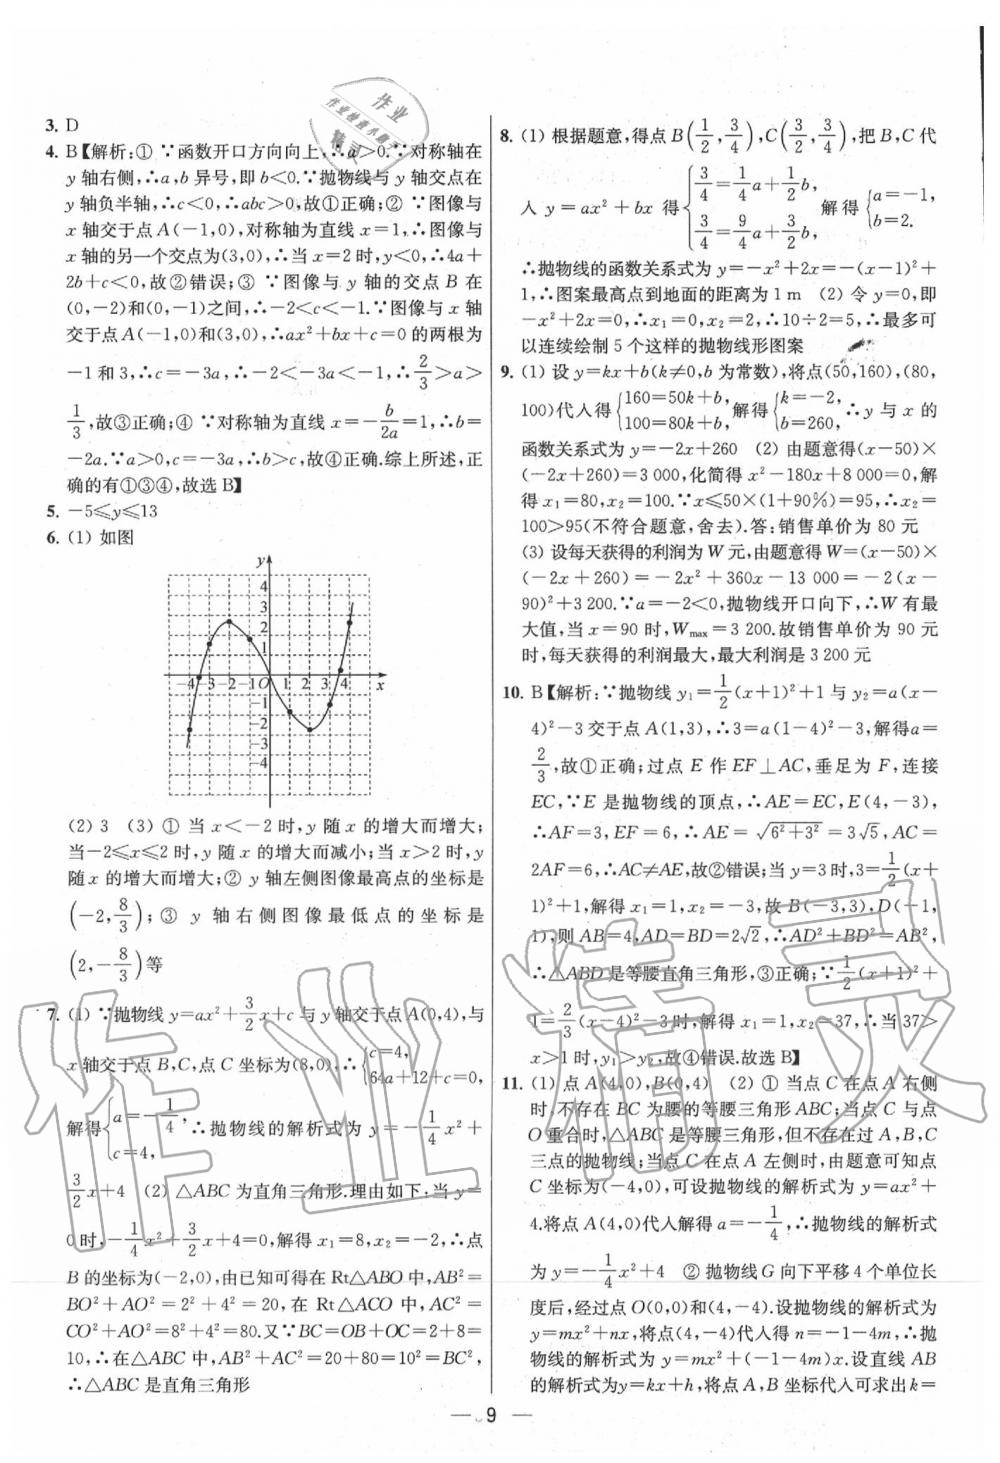 3. D
4. B【解析:① ∵函数开口方向向上,∴a>0.∵对称轴在
y 轴右侧,∴a,b 异号,即 b<0.∵抛物线与 y 轴交点在
y 轴负半轴,∴c<0,∴abc>0,故①正确;② ∵图像与
x 轴交于点 A(-1,0),对称轴为直线 x=1,∴图像与
x 轴的另一个交点为(3,0),∴当 x=2 时,y<0,∴4a+
2b+c<0,故②错误;③ ∵图像与 y 轴的交点 B 在
(0,-2)和(0,-1)之间,∴-2<c<-1.∵图像与 x 轴
交于点 A(-1,0)和(3,0),∴ax²+bx+c=0 的两根为
-1和 3,∴c=-3a,∴-2<-3a<-1,∴2/3>a>
1/3,故③正确;④ ∵对称轴为直线 x=-b/2a=1,∴b=
-2a.∵a>0,c=-3a,∴b>c,故④正确.综上所述,正
确的有①③④,故选 B】
5. -5≤y≤13
6. (1) 如图
y
4
3
2
1
-4-3-2-1O 1 2 3 4 x
-1
-2
-3
-4
(2) 3 (3) ① 当 x<-2 时,y 随 x 的增大而增大;
当-2≤x≤2 时,y 随 x 的增大而减小;当 x>2 时,y
随 x 的增大而增大;② y 轴左侧图像最高点的坐标是
(-2,8/3);③ y 轴右侧图像最低点的坐标是
(2,-8/3)等
7. (1) ∵抛物线 y=ax²+3/2x+c 与 y 轴交于点 A(0,4),与
x 轴交于点 B,C,点 C 坐标为(8,0),∴{c=4, 64a+12+c=0,
解得{a=-1/4, c=4, ∴抛物线的解析式为 y=-1/4x²+
3/2x+4 (2) △ABC 为直角三角形.理由如下:当 y=
0时,-1/4x²+3/2x+4=0,解得 x₁=8,x₂=-2,∴点
B 的坐标为(-2,0),由已知可得在 Rt△ABO 中,AB²=
BO²+AO²=2²+4²=20,在 Rt△ACO 中,AC²=
CO²+AO²=8²+4²=80.又∵BC=OB+OC=2+8=
10,∴在△ABC 中,AB²+AC²=20+80=10²=BC²,
∴△ABC 是直角三角形
8. (1) 根据题意,得点 B(1/2,3/4),C(3/2,3/4),把 B,C 代
入 y=ax²+bx 得{3/4=1/4a+1/2b, 3/4=9/4a+3/2b, 解得{a=-1, b=2.
∴抛物线的函数关系式为 y=-x²+2x=-(x-1)²+
1,∴图案最高点到地面的距离为 1 m (2) 令 y=0,即
-x²+2x=0,∴x₁=0,x₂=2,∴10÷2=5,∴最多可
以连续绘制 5 个这样的抛物线形图案
9. (1) 设 y=kx+b(k≠0,b 为常数),将点(50,160),(80,
100)代入得{160=50k+b, 100=80k+b, 解得{k=-2, b=260, ∴y 与 x 的
函数关系式为 y=-2x+260 (2) 由题意得(x-50)×
(-2x+260)=3 000,化简得 x²-180x+8 000=0,解
得 x₁=80,x₂=100.∵x≤50×(1+90%)=95,∴x₂=
100>95(不符合题意,舍去).答:销售单价为 80 元
(3) 设每天获得的利润为 W 元,由题意得 W=(x-50)×
(-2x+260)=-2x²+360x-13 000=-2(x-
90)²+3 200.∵a=-2<0,抛物线开口向下,∴W 有最
大值,当 x=90 时,Wmax=3 200.故销售单价为 90 元
时,每天获得的利润最大,最大利润是 3 200 元
10. B【解析:∵抛物线 y₁=1/2(x+1)²+1 与 y₂=a(x-
4)²-3 交于点 A(1,3),∴3=a(1-4)²-3,解得a=
2/3,故①正确;过点 E 作 EF⊥AC,垂足为 F,连接
EC,∵E 是抛物线的顶点,∴AE=EC,E(4,-3),
∴AF=3,EF=6,∴AE=√6²+3²=3√5,AC=
2AF=6,∴AC≠AE,故②错误;当 y=3 时,3=1/2(x+
1)²+1,解得 x₁=1,x₂=-3,故 B(-3,3),D(-1,
1),则 AB=4,AD=BD=2√2,∴AD²+BD²=AB²,
∴△ABD 是等腰直角三角形,③正确;∵1/2(x+1)²+
1=2/3(x-4)²-3 时,解得 x₁=1,x₂=37,∴当 37>
x>1 时,y₁>y₂,故④错误.故选 B】
11. (1) 点 A(4,0),B(0,4) (2) ① 当点 C 在点 A 右侧
时,不存在 BC 为腰的等腰三角形 ABC;当点 C 与点
O 重合时,△ABC 是等腰三角形,但不存在过 A,B,C
三点的抛物线;当点 C 在点 A 左侧时,由题意可知点
C 坐标为(-4,0),可设抛物线的解析式为 y=ax²+
4.将点 A(4,0)代入解得 a=-1/4,∴抛物线的解析式
为 y=-1/4x²+4 ② 抛物线 G 向下平移 4 个单位长
度后,经过点 O(0,0)和(4,-4).设抛物线的解析式为
y=mx²+nx,将点(4,-4)代入得 n=-1-4m,∴抛
物线的解析式为 y=mx²+(-1-4m)x.设直线 AB
的解析式为y=kx+h,将点 A,B 坐标代入可求出 k=
— 9 —
作业精灵